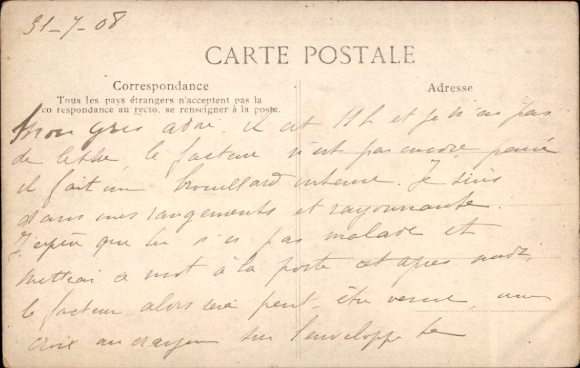 31-7-08
CARTE POSTALE
Correspondance
Tous les pays étrangers n'acceptent pas la
co respondance au recto, se renseigner à la poste.
Adresse
Mon gris adoré. il est 11 h et je n'ai pas
de lettre le facteur n'est pas encore passé
il fait un brouillard intense. Je suis
dans mes rangements et rayonnante.
J'espère que tu n'es pas malade et
mettrai ce mot à la poste cet après midi,
le facteur alors sera peut-être venu, une
croix au crayon sur l'enveloppe te